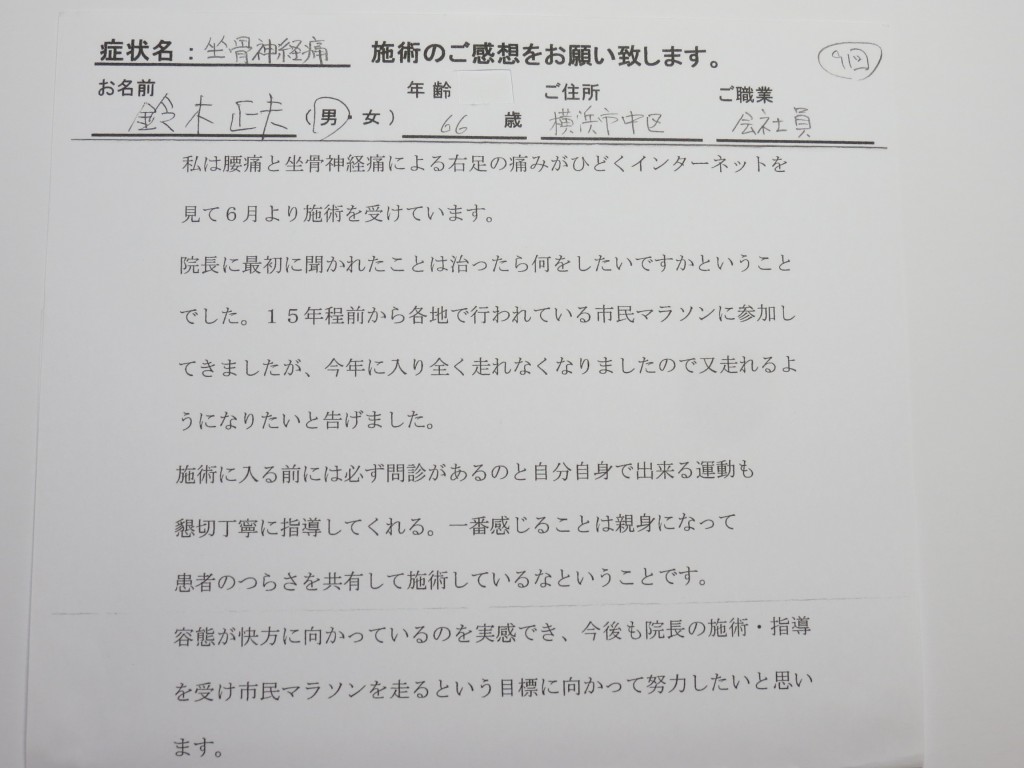 症状名：坐骨神経痛 施術のご感想をお願い致します。 9回
お名前 年齢 ご住所 ご職業
鈴木正夫（男・女） 66 歳 横浜市中区 会社員
私は腰痛と坐骨神経痛による右足の痛みがひどくインターネットを
見て６月より施術を受けています。
院長に最初に聞かれたことは治ったら何をしたいですかということ
でした。１５年程前から各地で行われている市民マラソンに参加し
てきましたが、今年に入り全く走れなくなりましたので又走れるよ
うになりたいと告げました。
施術に入る前には必ず問診があるのと自分自身で出来る運動も
懇切丁寧に指導してくれる。一番感じることは親身になって
患者のつらさを共有して施術しているなということです。
容態が快方に向かっているのを実感でき、今後も院長の施術・指導
を受け市民マラソンを走るという目標に向かって努力したいと思い
ます。